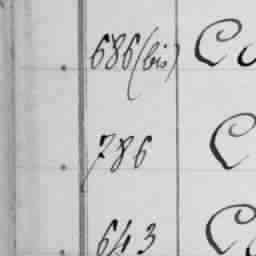 686(bis) Co
786 C
643 Co